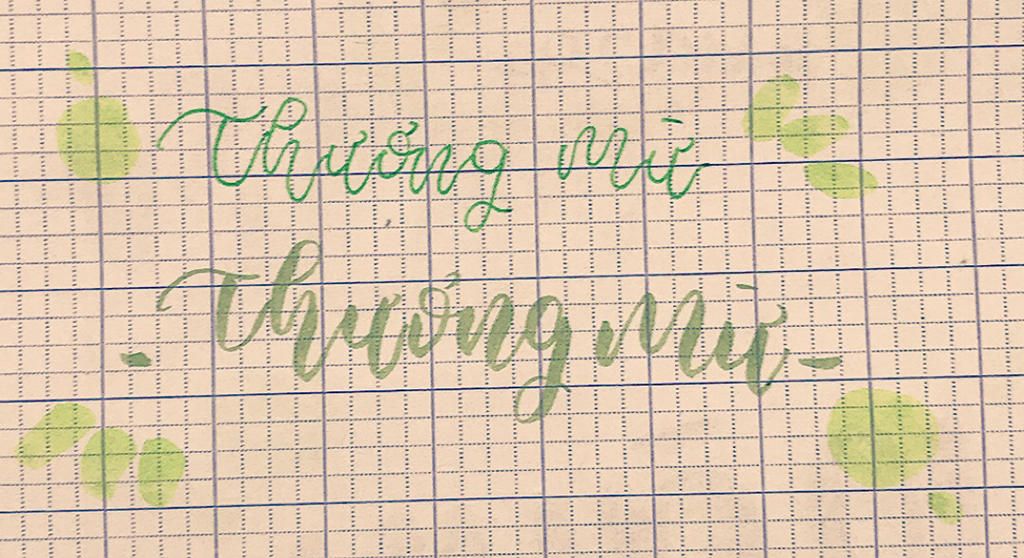 Thương mừ
- Thương mừ -